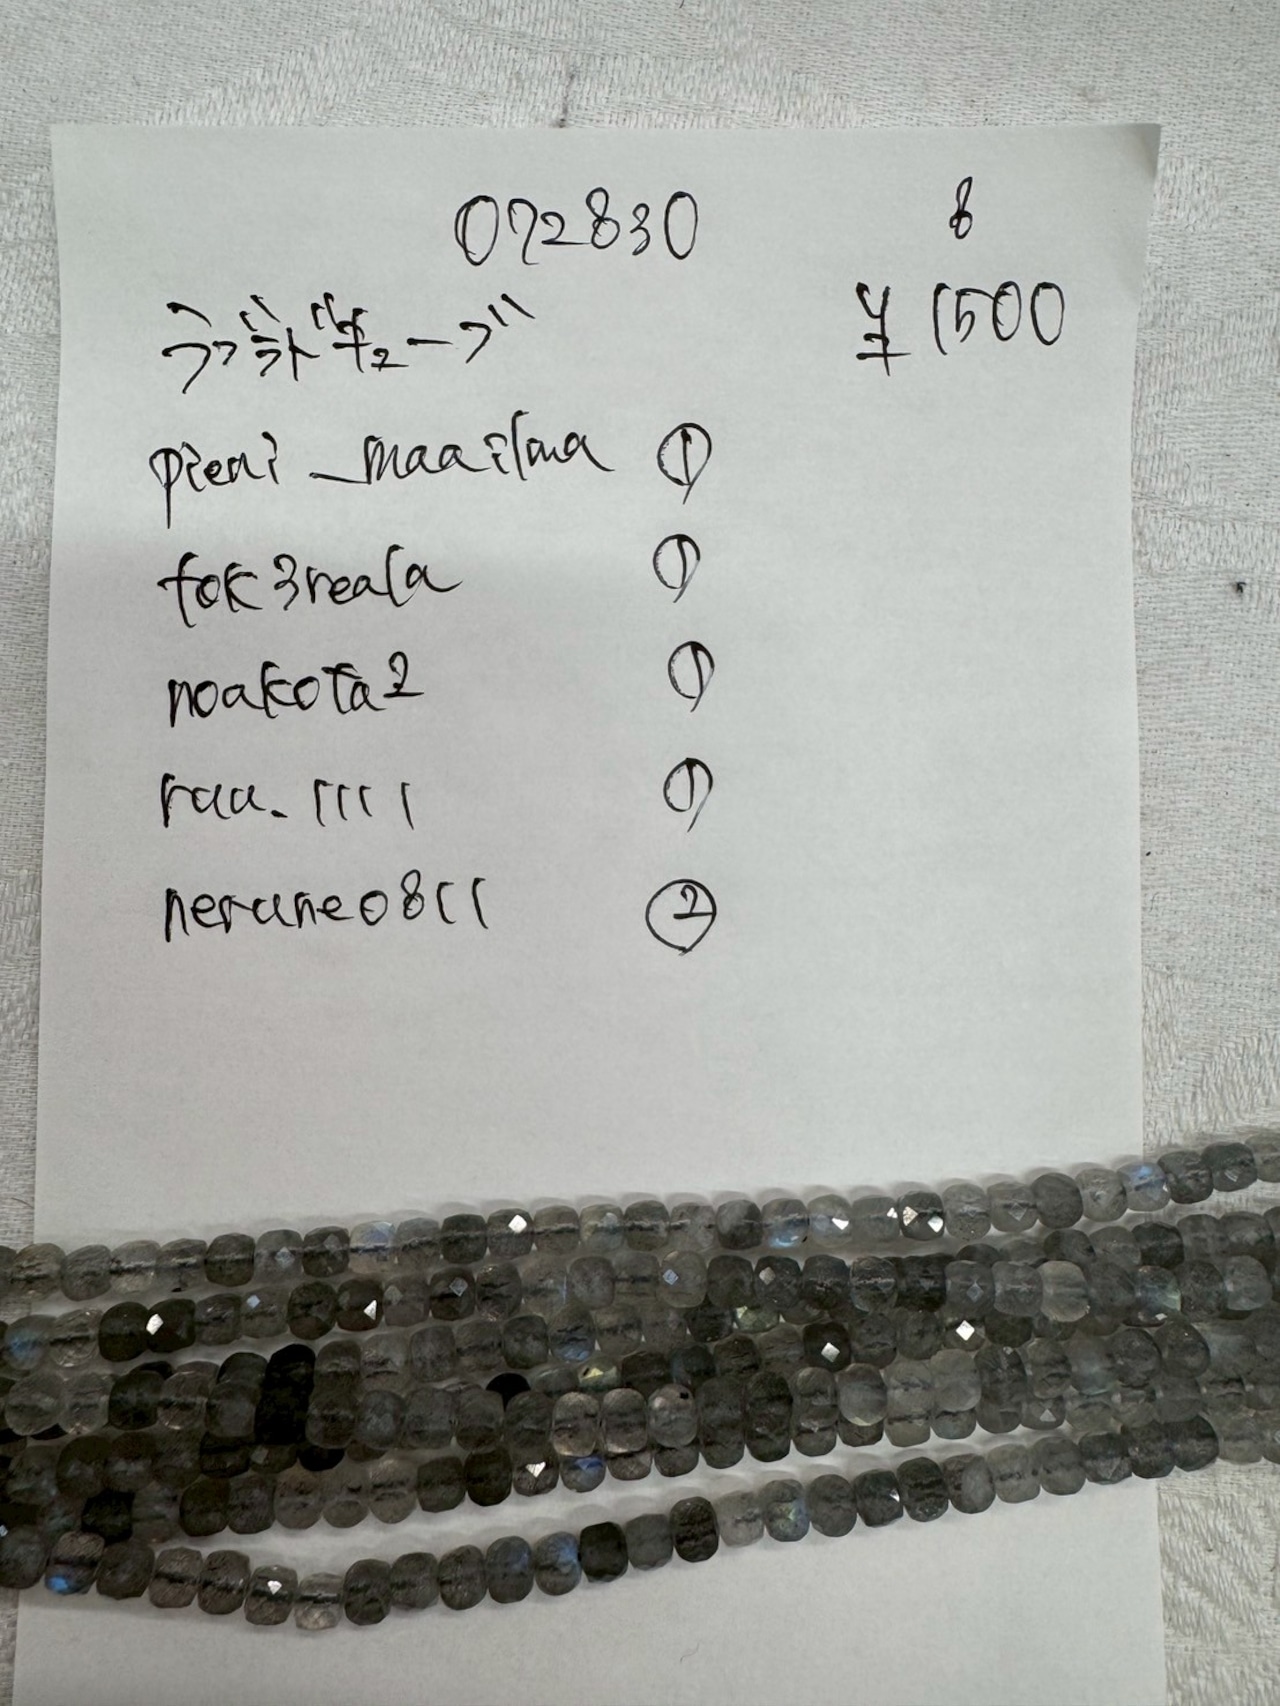 072830 8
ラブラド キューブ ¥1500
pieni_maailma ①
tok3reala ①
noakota2 ①
raa.1111 ①
nerune0811 ②